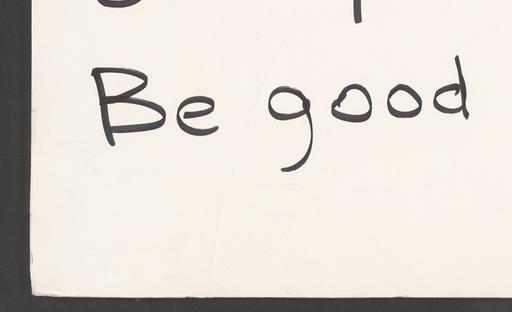 Be good